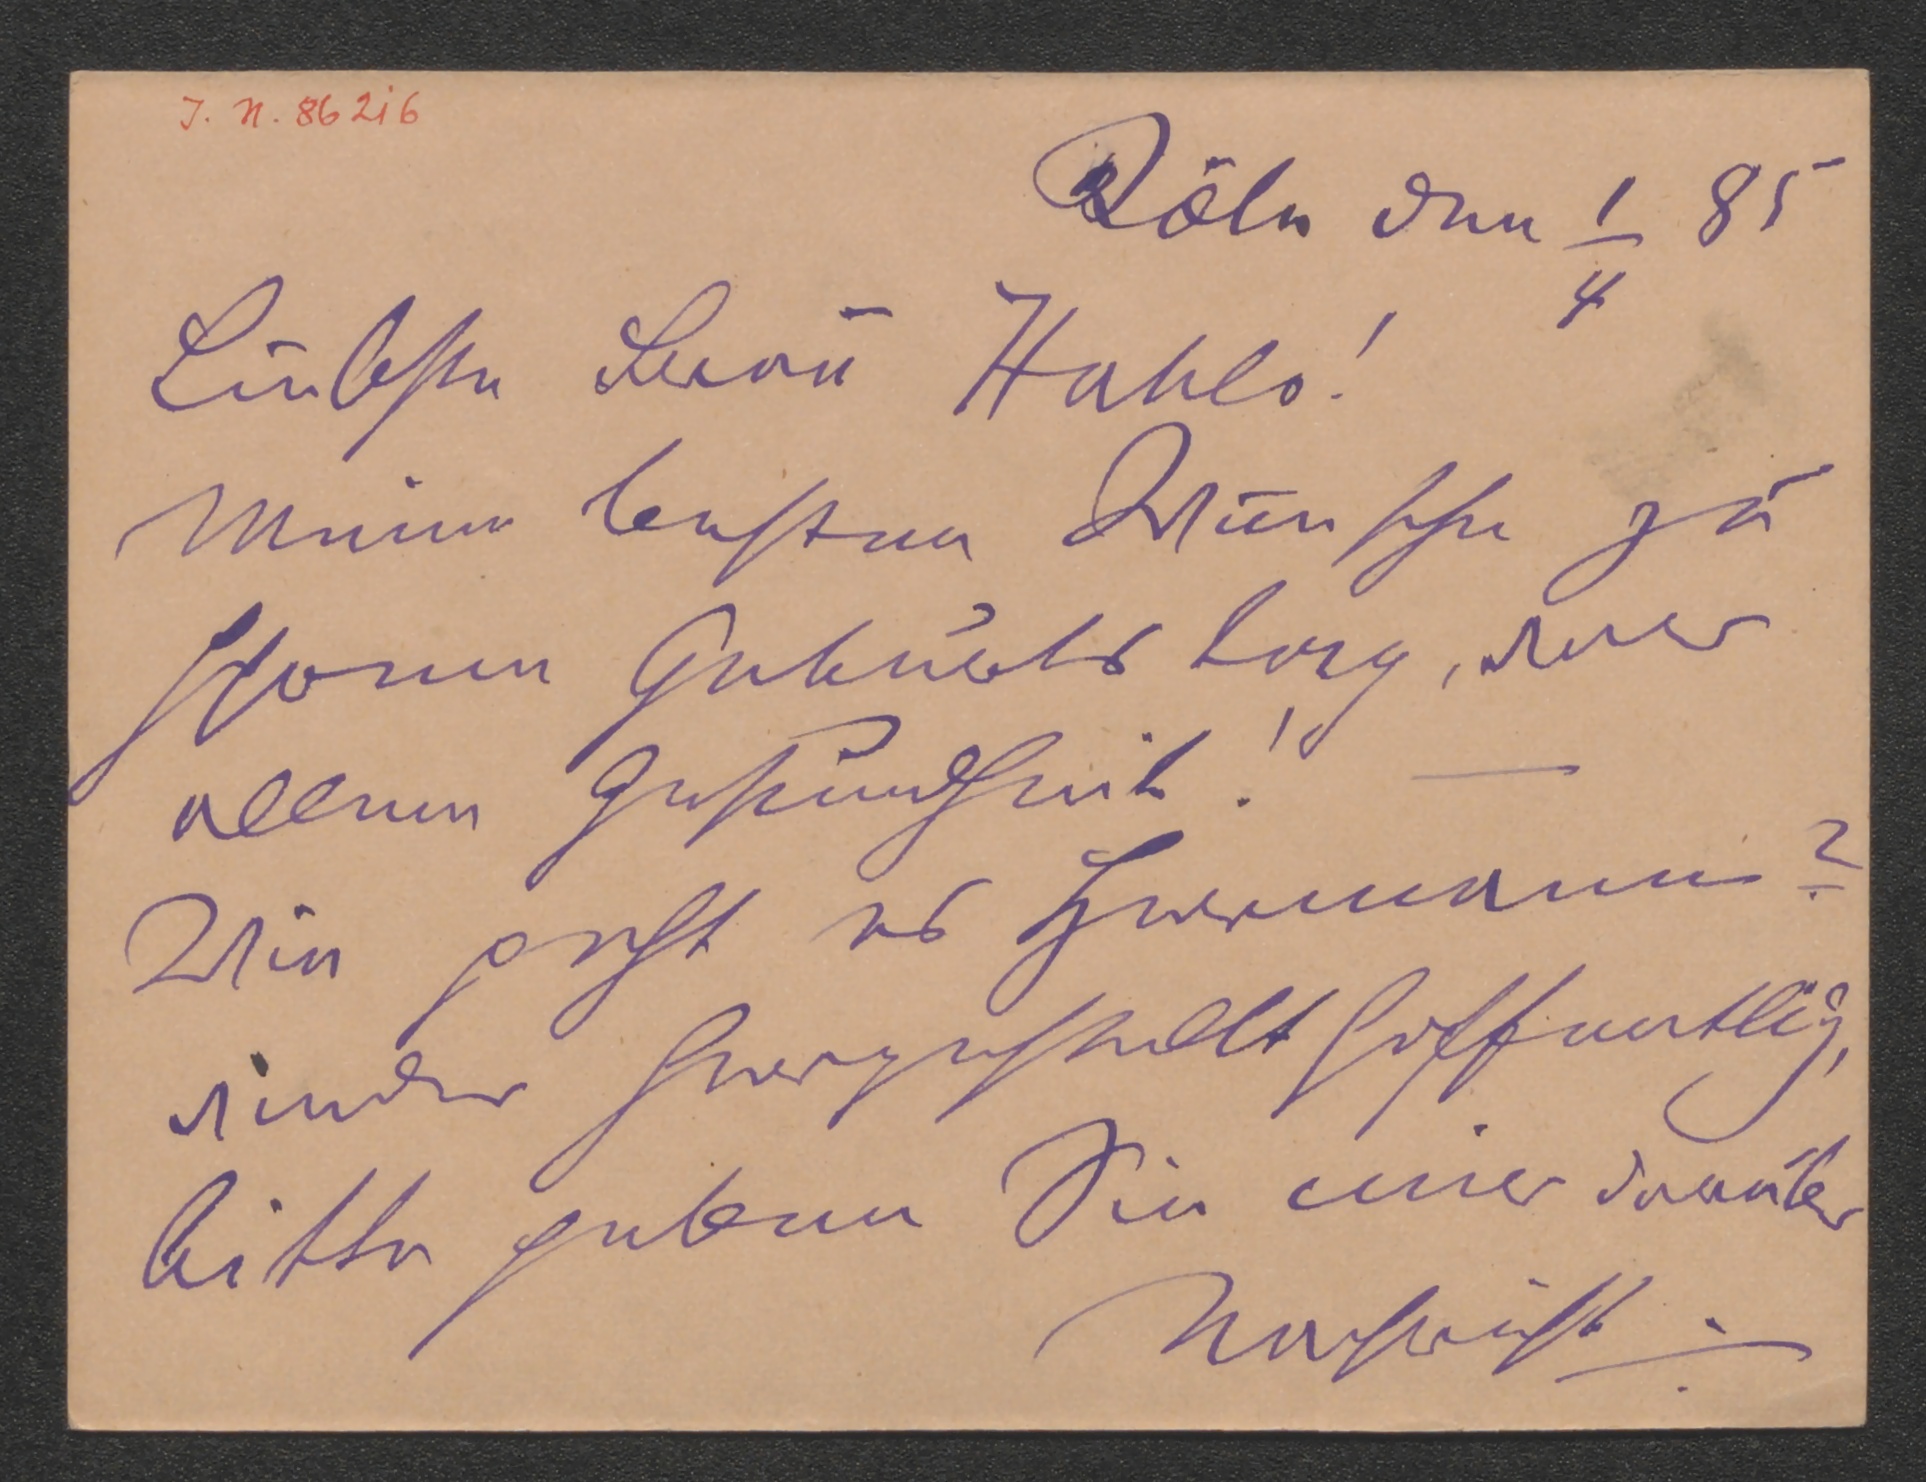 J. N. 86216
Köln den 1/4 85
Liebste Frau Hahlo!
Meine besten Wünsche zu
Ihrem Geburtstag, vor
allem Gesundheit! —
Wie geht es Herrmann?
wieder hergestellt hoffentlich,
bitte geben Sie mir darüber
Nachricht. —